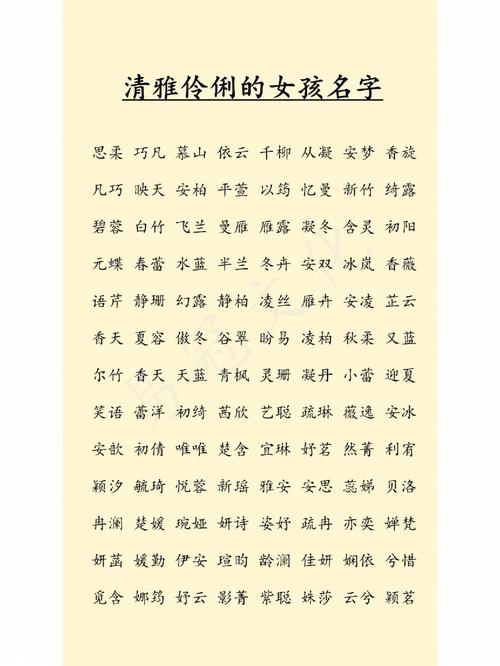 清雅伶俐的女孩名字
思柔 巧凡 慕山 依云 千柳 从凝 安梦 香旋
凡巧 映天 安柏 平萱 以筠 忆曼 新竹 绮露
碧蓉 白竹 飞兰 曼雁 雁露 凝冬 含灵 初阳
元蝶 春蕾 水蓝 半兰 冬卉 安双 冰岚 香薇
语芹 静珊 幻露 静柏 凌丝 雁卉 安凌 芷云
香天 夏容 傲冬 谷翠 盼易 凌柏 秋柔 又蓝
尔竹 香天 天蓝 青枫 灵珊 凝丹 小蕾 迎夏
笑语 蕾洋 初绮 茜欣 艺聪 疏琳 薇逸 安冰
安歆 初倩 唯唯 楚含 宜琳 妤茗 然菁 利宥
颖汐 毓琦 悦蓉 新瑶 雅安 安思 蕊娣 贝洛
冉澜 楚媛 琬娅 妍诗 姿妤 疏冉 亦奕 婵梵
妍菡 媛勤 伊安 瑄昀 龄澜 佳妍 娴依 兮惜
觅含 娜筠 妤云 影菁 紫聪 姝莎 云兮 颖茗